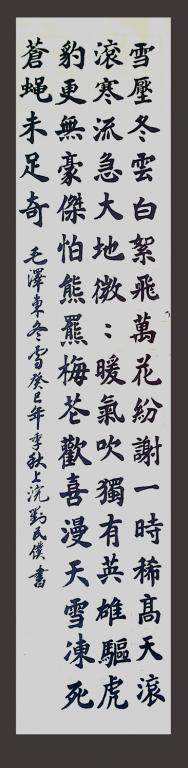 雪壓冬雲白絮飛萬花紛謝一時稀髙天滾
滾寒流急大地微：暖氣吹獨有英雄驅虎
豹更無豪傑怕熊羆梅花歡喜漫天雪凍死
蒼蝇未足奇
毛澤東冬雪癸巳年季秋上浣劉民僕書